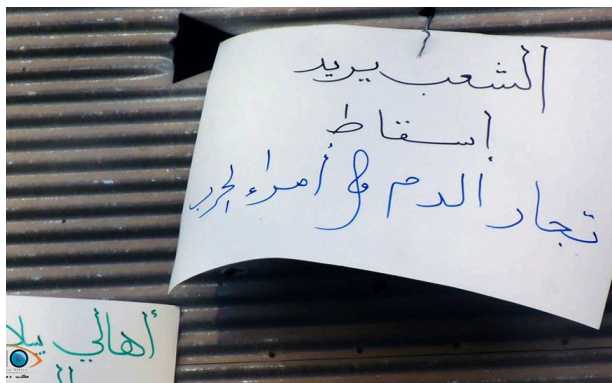 الشعب يريد
إسقاط
تجار الدم و أمراء الحرب
أهالي